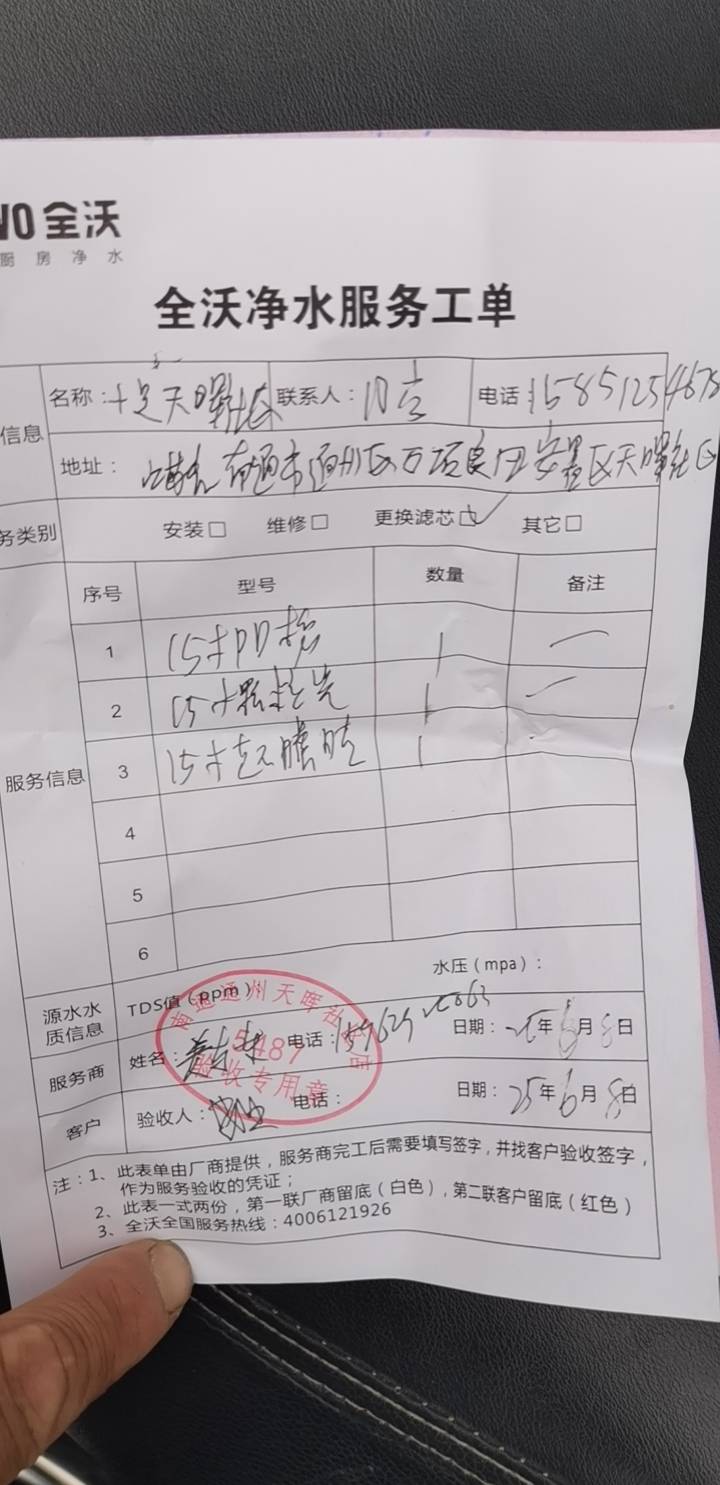 VO全沃
厨房净水
全沃净水服务工单
信息
名称：十足天曜社区 联系人：门店 电话
地址：南通市通州区万顷良田安置区天曜社区
务类别 安装□ 维修□ 更换滤芯□✓ 其它□
服务信息
序号 型号 数量 备注
1 15寸PP棉 1 —
2 15寸颗粒炭 1 —
3 15寸超滤膜 1
4
5
6
源水水质信息 TDS值（ppm） 水压（mpa）：
服务商 姓名： 电话： 日期：25年6月8日
客户 验收人： 电话： 日期：25年6月8日
南通通州天晖社区店
5487
验收专用章
注：1、此表单由厂商提供，服务商完工后需要填写签字，并找客户验收签字，
作为服务验收的凭证；
2、此表一式两份，第一联厂商留底（白色），第二联客户留底（红色）
3、全沃全国服务热线：4006121926